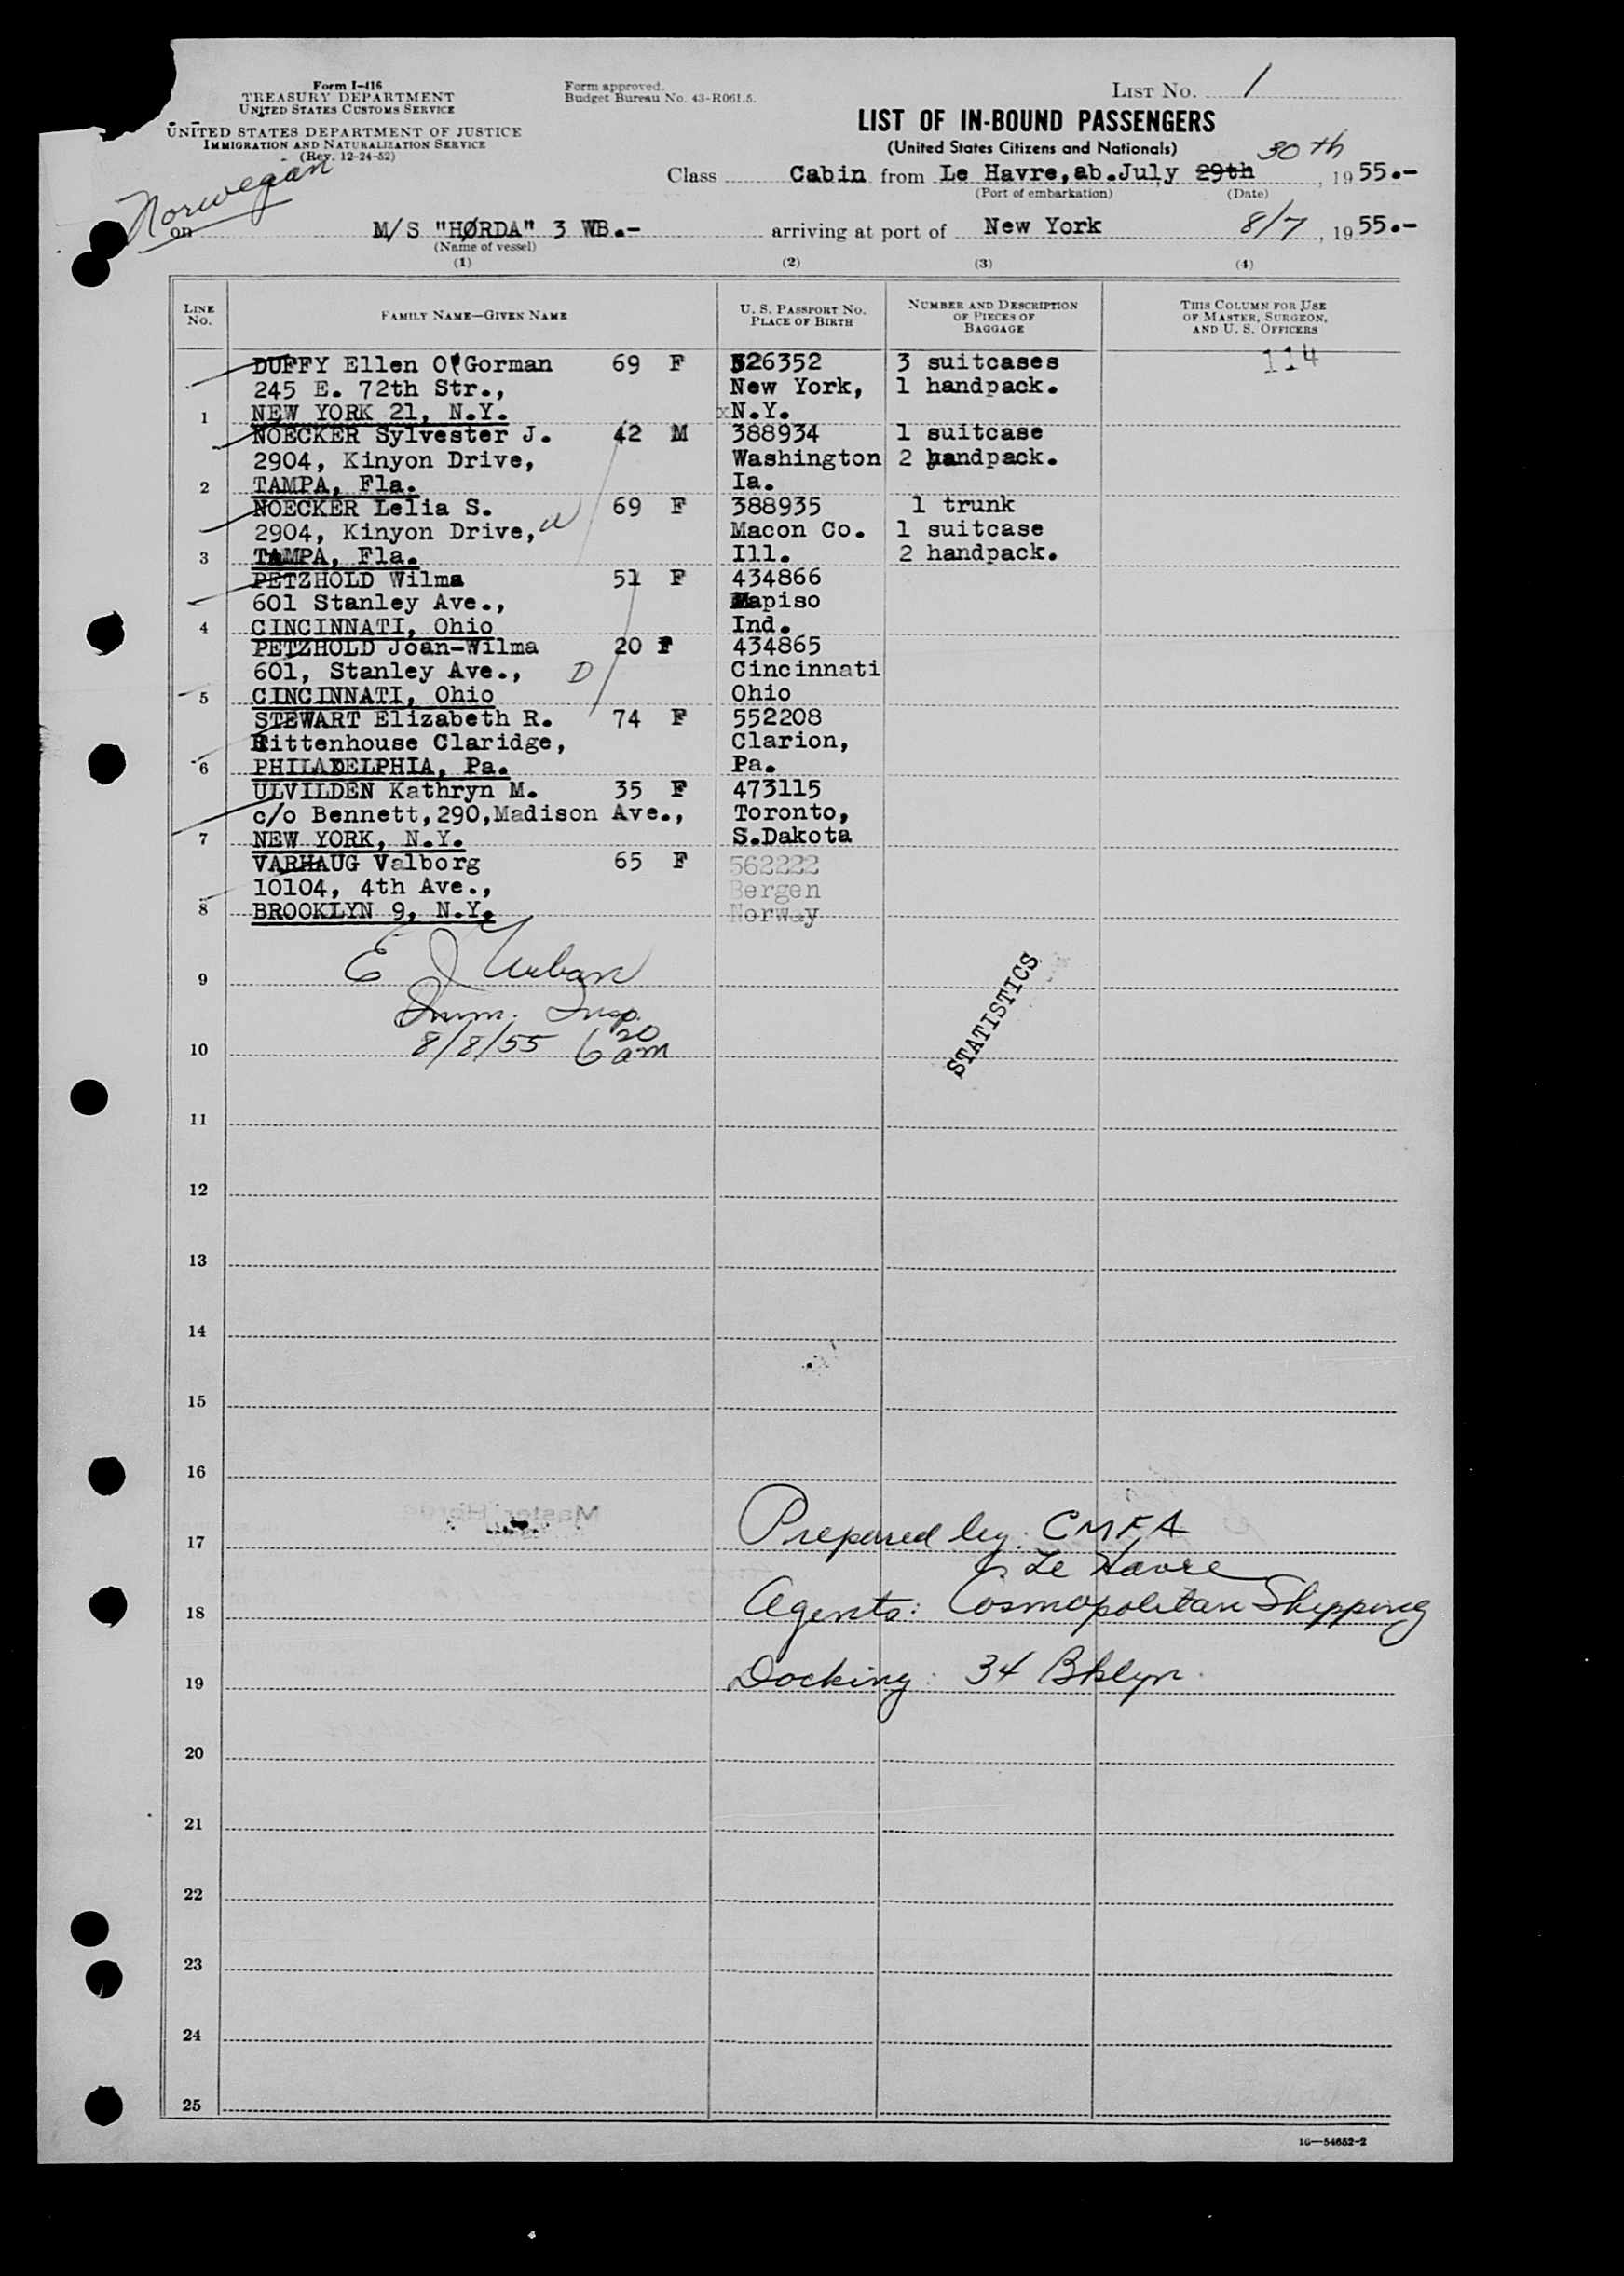 Form I-416
TREASURY DEPARTMENT
UNITED STATES CUSTOMS SERVICE
UNITED STATES DEPARTMENT OF JUSTICE
IMMIGRATION AND NATURALIZATION SERVICE
(Rev. 12-24-52)
Form approved.
Budget Bureau No. 43-R061.5.
LIST NO. 1
LIST OF IN-BOUND PASSENGERS
(United States Citizens and Nationals)
30th
Class Cabin from Le Havre, ab. July 29th, 1955.-
(Port of embarkation) (Date)
Norwegian
on M/S "HØRDA" 3 WB.- arriving at port of New York 8/7, 1955.-
(Name of vessel)
(1) (2) (3) (4)
LINE NO. FAMILY NAME—GIVEN NAME U. S. PASSPORT NO. PLACE OF BIRTH NUMBER AND DESCRIPTION OF PIECES OF BAGGAGE THIS COLUMN FOR USE OF MASTER, SURGEON, AND U. S. OFFICERS
DUFFY Ellen O'Gorman 69 F 526352 3 suitcases 114
245 E. 72th Str., New York, 1 handpack.
1 NEW YORK 21, N.Y. xN.Y.
NOECKER Sylvester J. 42 M 388934 1 suitcase
2904, Kinyon Drive, Washington 2 handpack.
2 TAMPA, Fla. Ia.
NOECKER Lelia S. 69 F 388935 1 trunk
2904, Kinyon Drive, W Macon Co. 1 suitcase
3 TAMPA, Fla. Ill. 2 handpack.
PETZHOLD Wilma 51 F 434866
601 Stanley Ave., Mapiso
4 CINCINNATI, Ohio Ind.
PETZHOLD Joan-Wilma 20 F 434865
601, Stanley Ave., D Cincinnati
5 CINCINNATI, Ohio Ohio
STEWART Elizabeth R. 74 F 552208
Rittenhouse Claridge, Clarion,
6 PHILADELPHIA, Pa. Pa.
ULVILDEN Kathryn M. 35 F 473115
c/o Bennett,290,Madison Ave., Toronto,
7 NEW YORK, N.Y. S.Dakota
VARHAUG Valborg 65 F 562222
10104, 4th Ave., Bergen
8 BROOKLYN 9, N.Y. Norway
9 E J Urban
Imm. Insp.
10 8/8/55 6 20 am
STATISTICS
11
12
13
14
15
16
17 Prepared by: CMFA
Le Havre
18 Agents: Cosmopolitan Shipping
19 Docking: 34 Bklyn.
20
21
22
23
24
25
16—54652-2